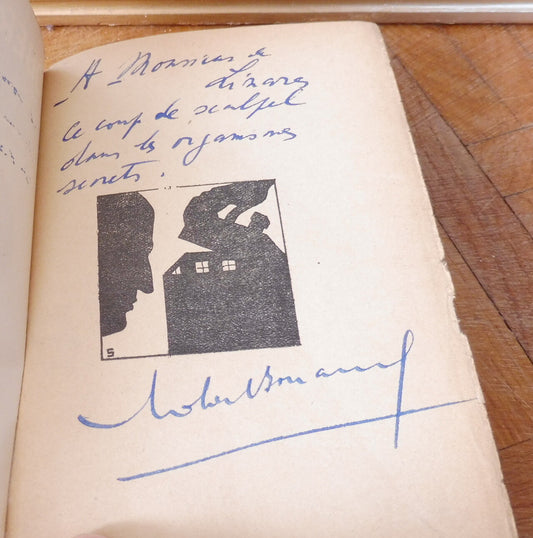 A Monsieur de
Linares
ce coup de scalpel
dans les organismes
secrets.
S
Robert Boucard